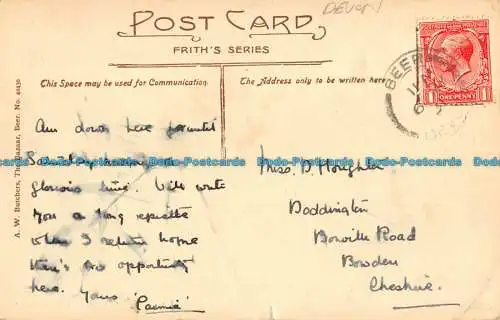 DEVON
POST CARD
FRITH'S SERIES
This Space may be used for Communication.
The Address only to be written here
A. W. Butchers, The Bazaar, Beer. No.
BEER
ONE PENNY
Am down here
Saturday
glorious time. Will write
you a long epistle
when I return home
there's no opportunity
here. Yours
Miss. D. Houghton
Boddington
Road
Bowden
Cheshire.
Dado-Postcards Dado-Postcards Dado-Postcards Dado-Postcards